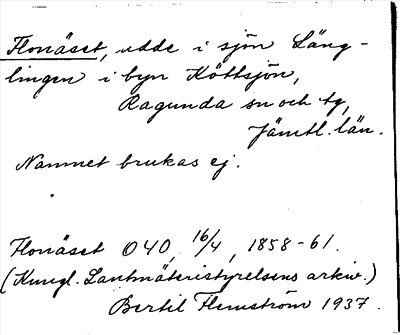 Flonäset, udde i sjön Läng-
lingen i byn Köttsjön,
Ragunda sn och tg,
Jämtl. län.
Namnet brukas ej.
Flonäset O40, 16/4, 1858-61.
(Kungl. Lantmäteristyrelsens arkiv.)
Bertil Flemström 1937.